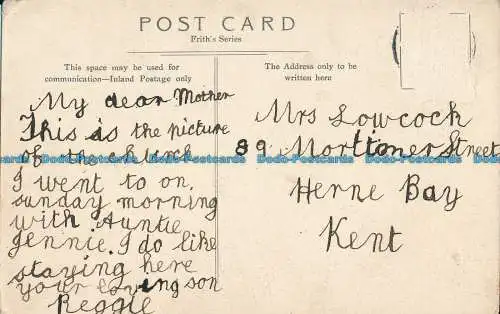 POST CARD
Frith's Series
This space may be used for
communication—Inland Postage only
The Address only to be
written here
My dear Mother
This is the picture
of the church
I went to on
sunday morning
with Auntie
Jennie. I do like
staying here
your loving son
Reggie
Mrs Lowcock
89 Mortimer Street
Herne Bay
Kent
Dodo-Postcards Dodo-Postcards Dodo-Postcards Dodo-Postcards Dodo-Postcards